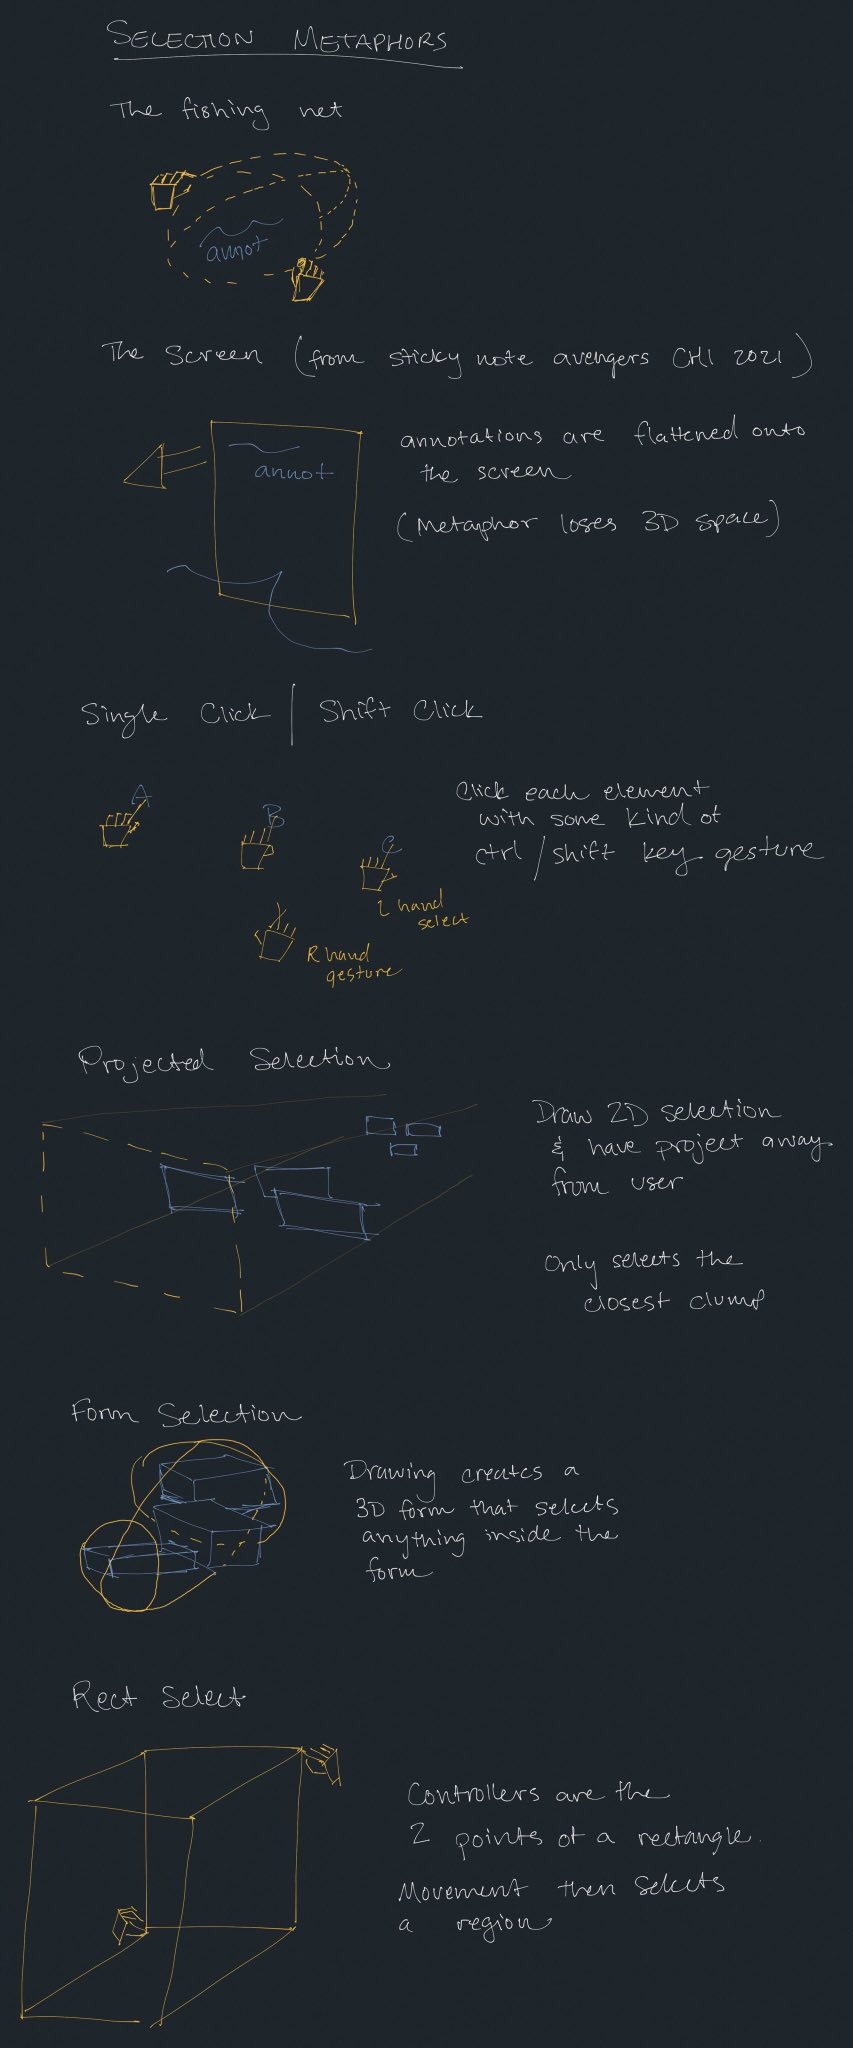 SELECTION METAPHORS
The fishing net
annot
The Screen (from sticky note avengers CHI 2021)
annot
annotations are flattened onto
the screen
(Metaphor loses 3D space)
Single Click | Shift Click
A
B
C
L hand
select
R hand
gesture
Click each element
with some kind of
ctrl/shift key gesture
Projected Selection
Draw 2D selection
& have project away
from user
Only selects the
closest clump
Form Selection
Drawing creates a
3D form that selects
anything inside the
form
Rect Select
Controllers are the
2 points of a rectangle.
Movement then selects
a region